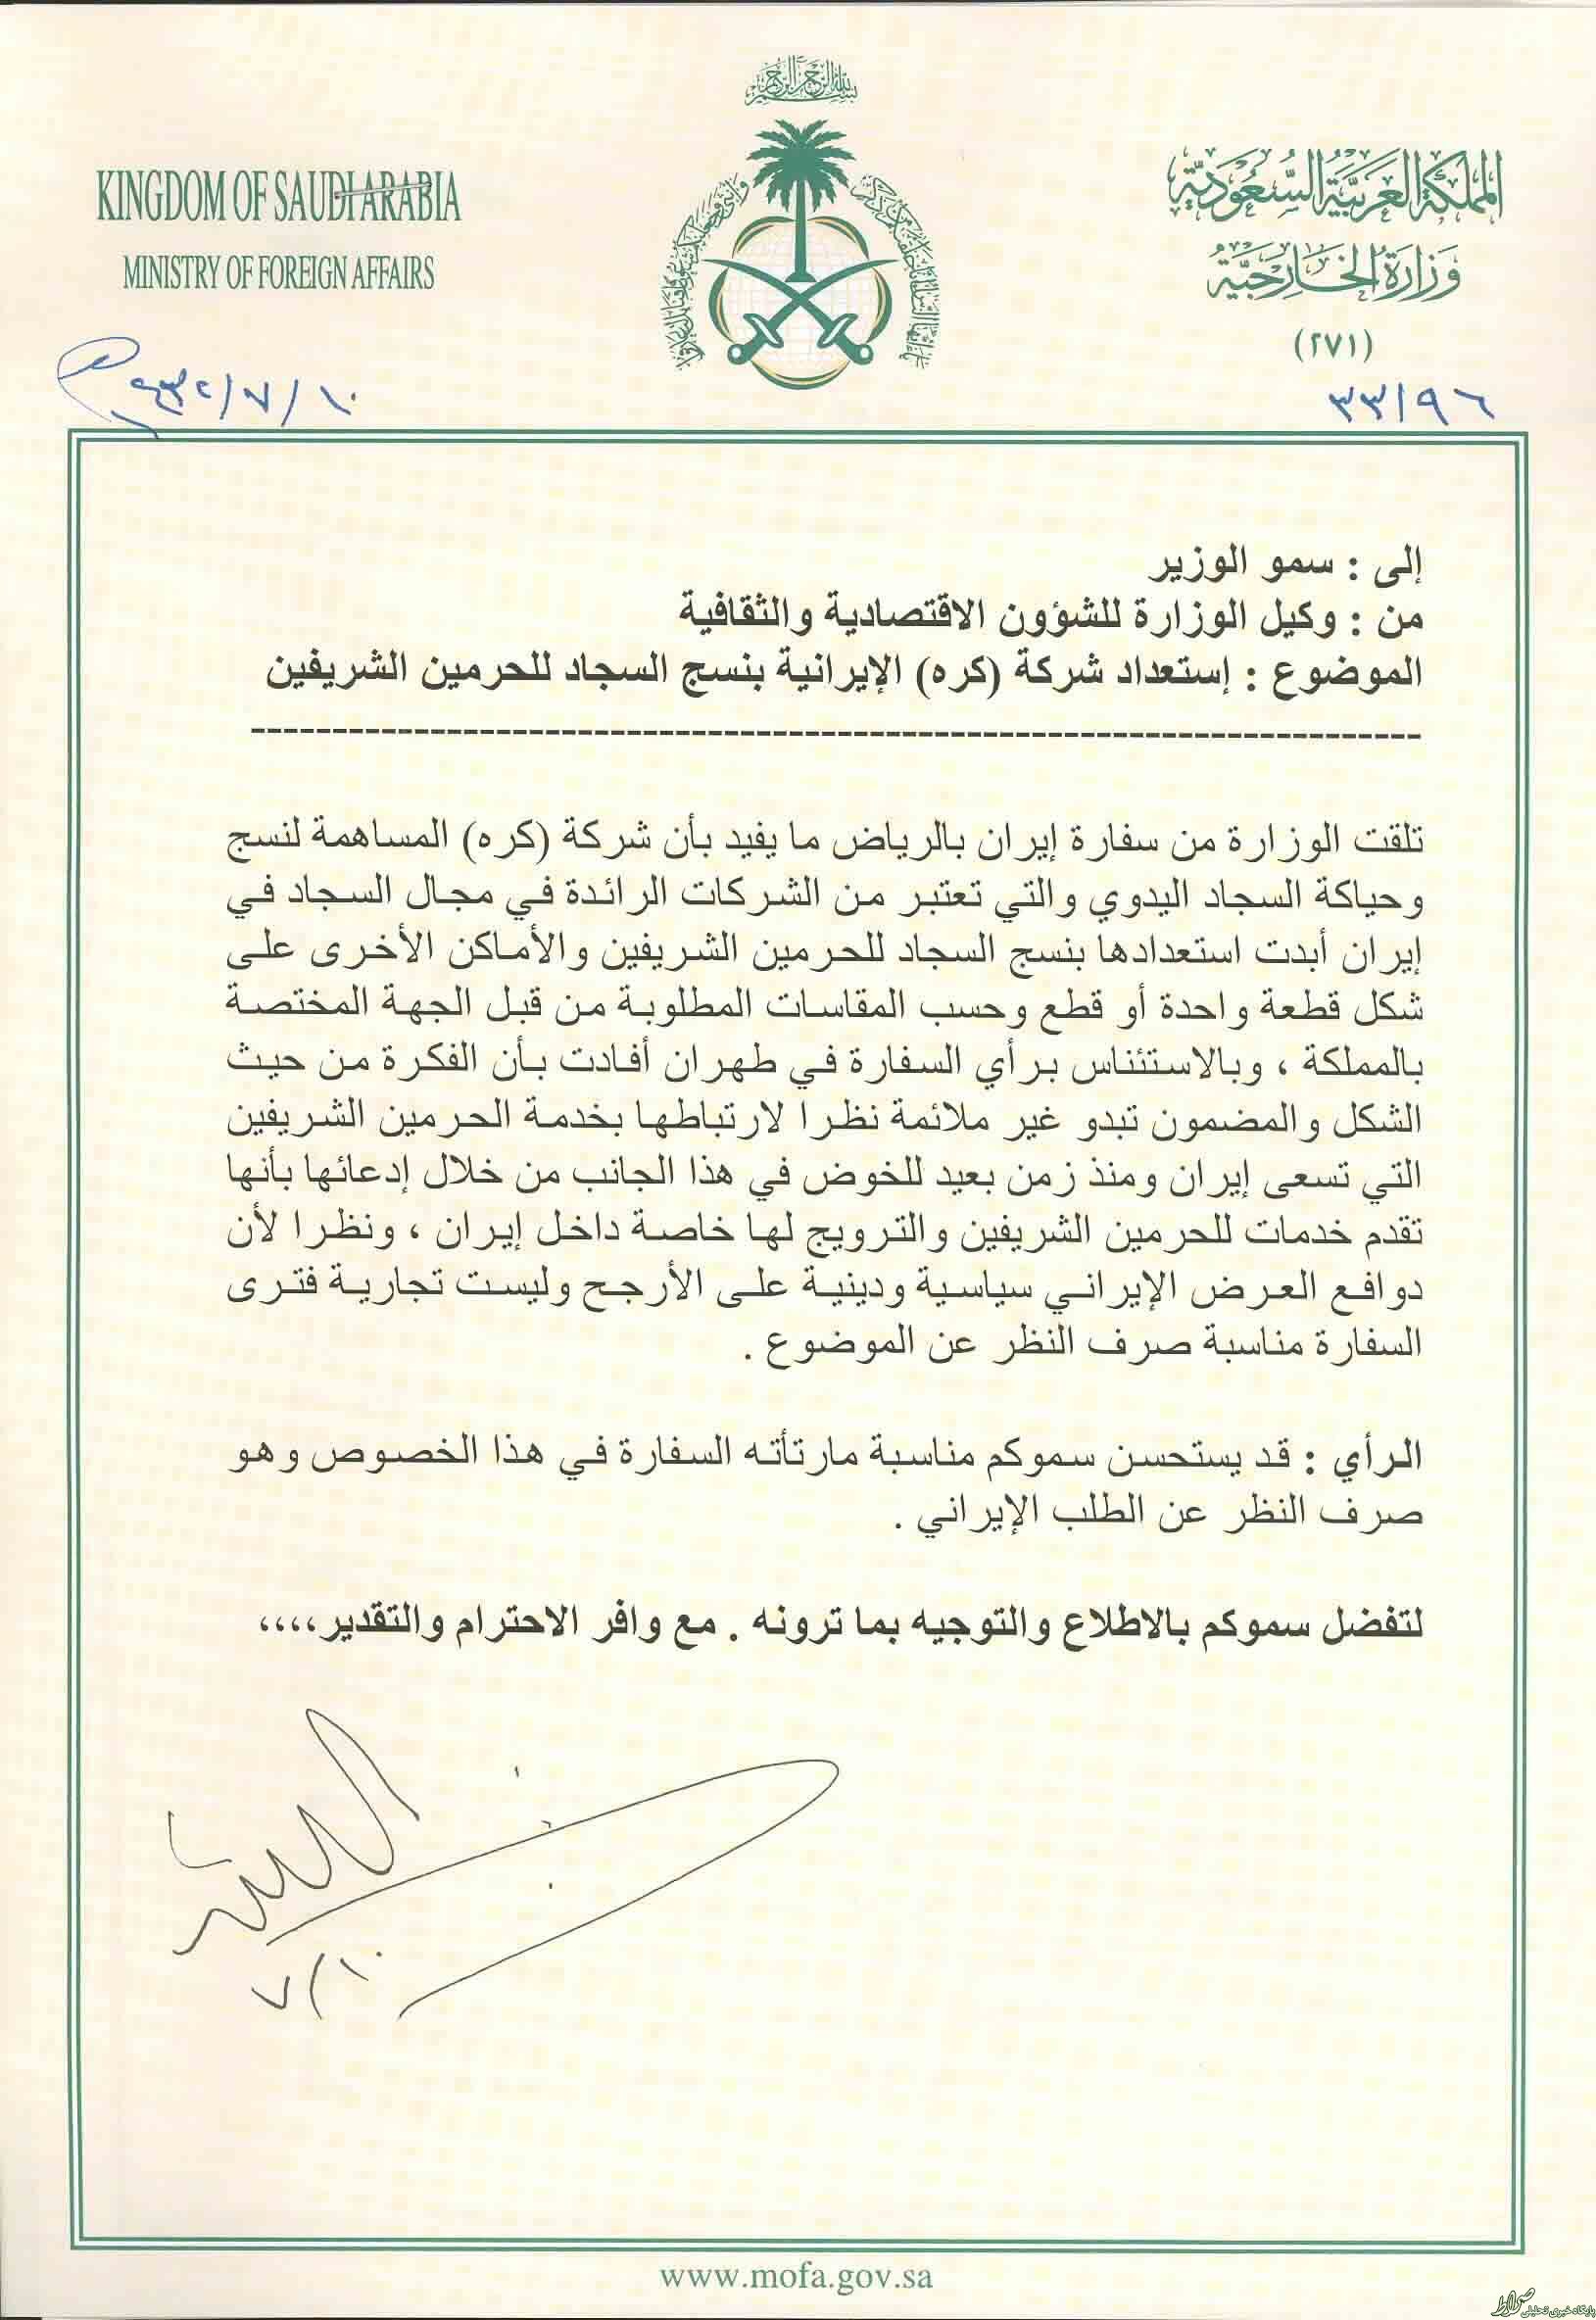 بسم الله الرحمن الرحيم
KINGDOM OF SAUDI ARABIA
MINISTRY OF FOREIGN AFFAIRS
المملكة العربية السعودية
وزارة الخارجية
(٢٧١)
٣٣/٩٦
١٤٣٢/٧/١٠
إلى : سمو الوزير
من : وكيل الوزارة للشؤون الاقتصادية والثقافية
الموضوع : إستعداد شركة (كره) الإيرانية بنسج السجاد للحرمين الشريفين
تلقت الوزارة من سفارة إيران بالرياض ما يفيد بأن شركة (كره) المساهمة لنسج
وحياكة السجاد اليدوي والتي تعتبر من الشركات الرائدة في مجال السجاد في
إيران أبدت استعدادها بنسج السجاد للحرمين الشريفين والأماكن الأخرى على
شكل قطعة واحدة أو قطع وحسب المقاسات المطلوبة من قبل الجهة المختصة
بالمملكة ، وبالاستئناس برأي السفارة في طهران أفادت بأن الفكرة من حيث
الشكل والمضمون تبدو غير ملائمة نظرا لارتباطها بخدمة الحرمين الشريفين
التي تسعى إيران ومنذ زمن بعيد للخوض في هذا الجانب من خلال إدعائها بأنها
تقدم خدمات للحرمين الشريفين والترويج لها خاصة داخل إيران ، ونظرا لأن
دوافع العرض الإيراني سياسية ودينية على الأرجح وليست تجارية فترى
السفارة مناسبة صرف النظر عن الموضوع .
الرأي : قد يستحسن سموكم مناسبة مارتأته السفارة في هذا الخصوص وهو
صرف النظر عن الطلب الإيراني .
لتفضل سموكم بالاطلاع والتوجيه بما ترونه . مع وافر الاحترام والتقدير،،،،
٧/١٠
www.mofa.gov.sa
صراط
پایگاه خبری تحلیلی